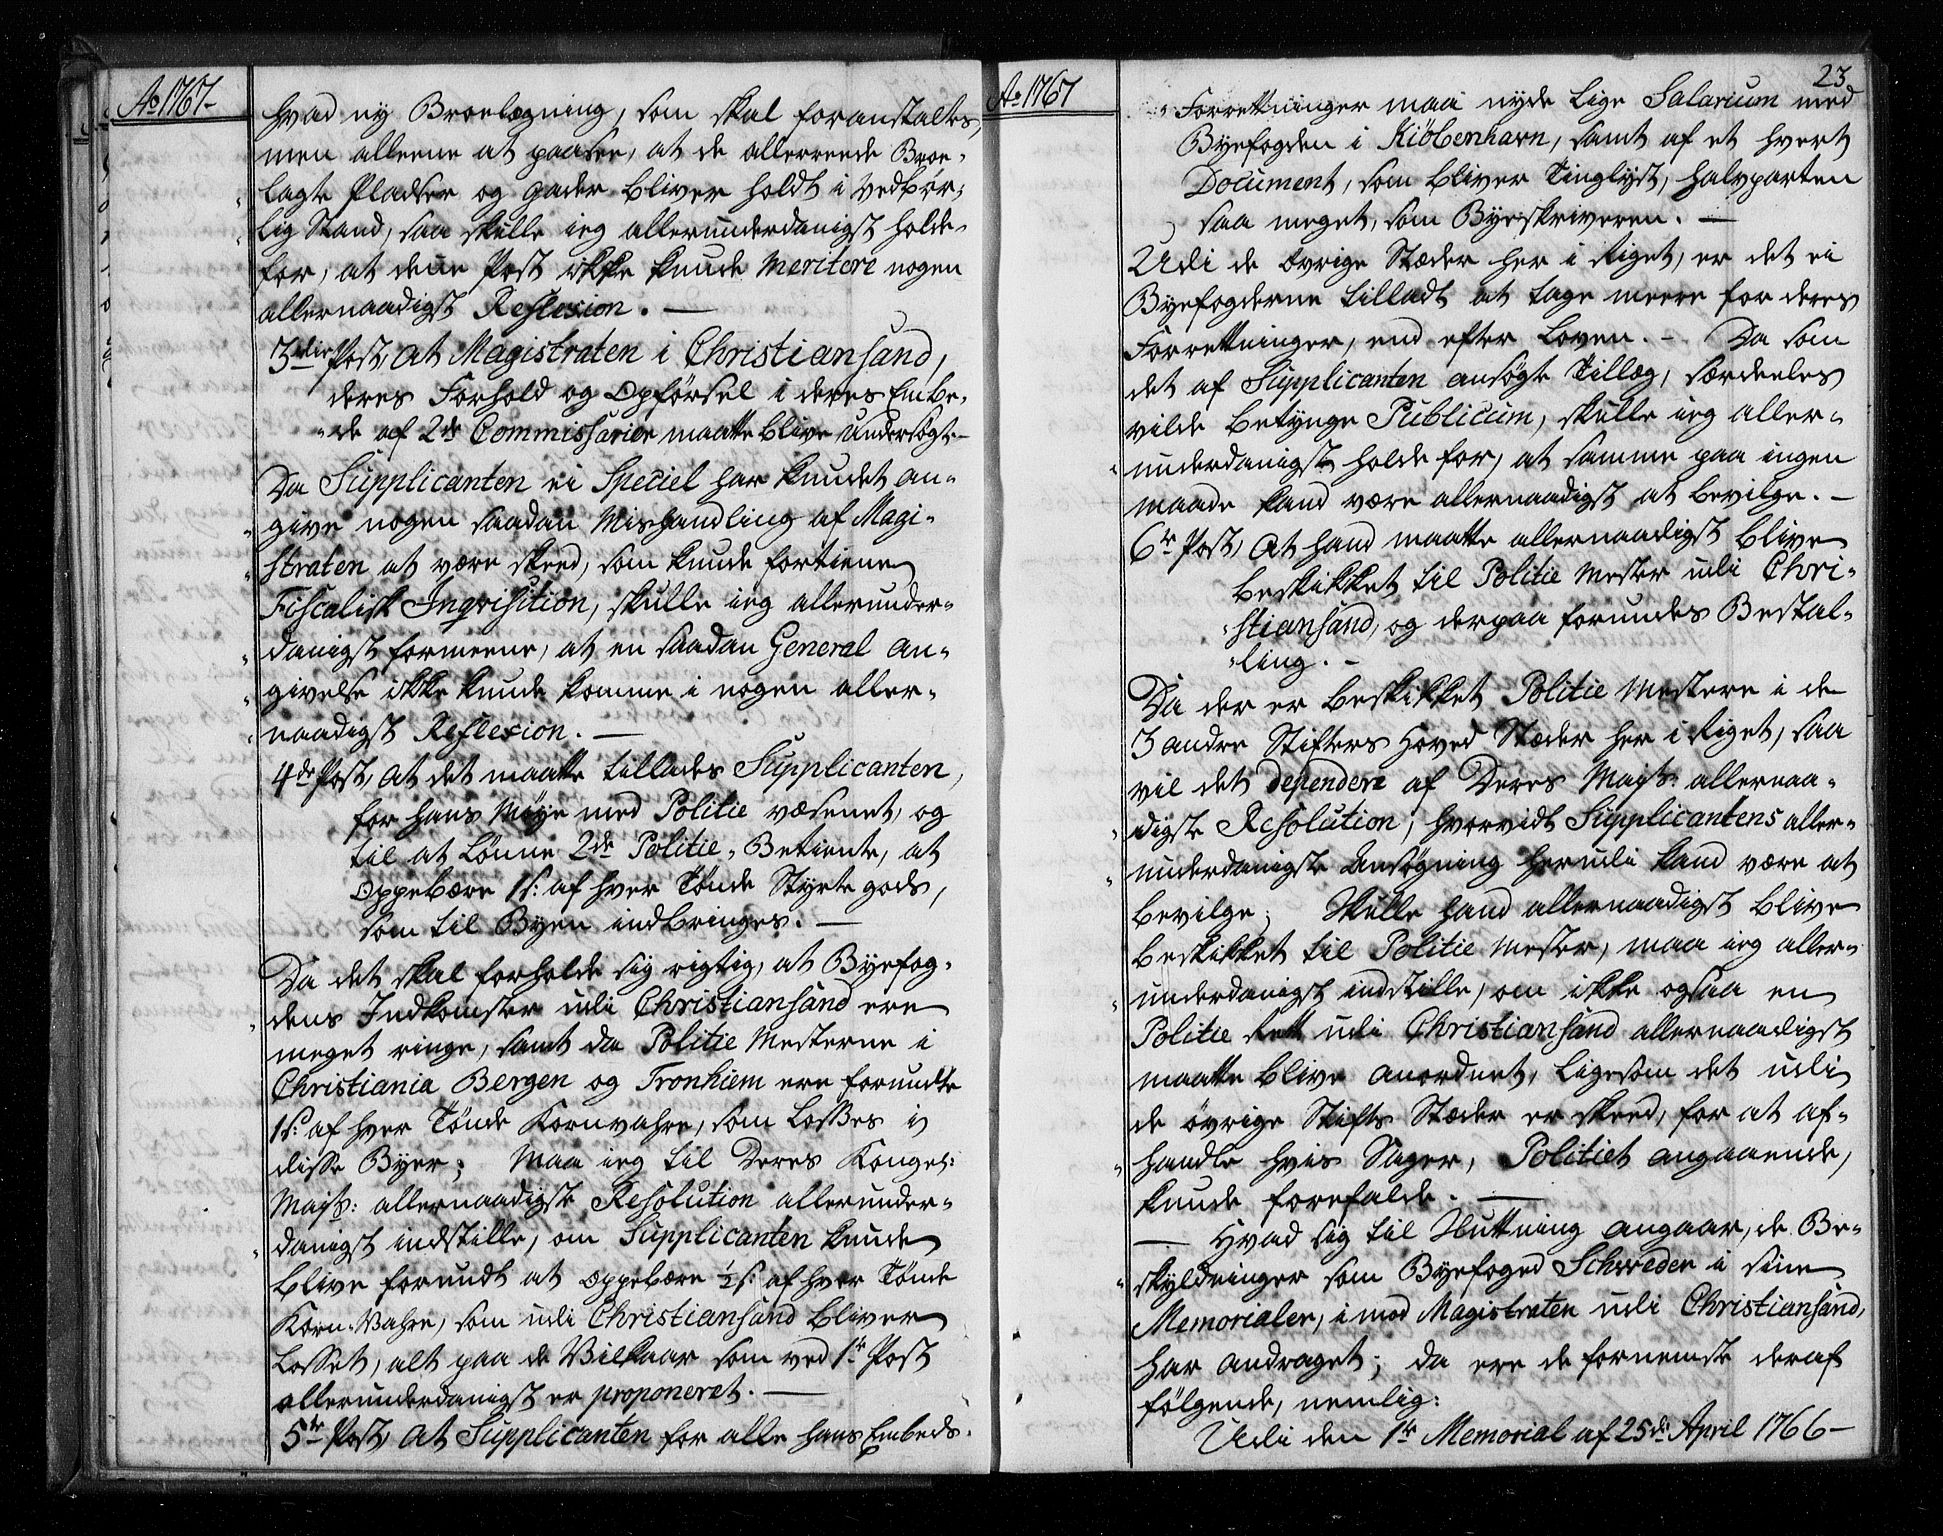 Ao 1767-
hvad ny Broelægning, som skal foranstaltes,
men alleene at paasee, at de allerreede Broe-
lagte Pladser og Gader bliver holdt i vedbør-
lig Stand, saa skulle ieg allerunderdanigst holde
for, at denne Post ikke kunde meritere nogen
allernaadigst Reflexion. —
3die Post, At Magistraten i Christiansand,
deres Forhold og Opførsel i deres Embe-
"de af 2de Commissarier maatte blive undersøgt.-
Da Supplicanten ei Speciel har kundet an-
"give nogen saadan Mishandling af Magi-
"straten at være skeed, som kunde fortiene
Fiscalisk Inqvisition, skulle ieg allerunder-
"danigst formeene, at en saadan General an-
"givelse ikke kunde komme i nogen aller-
"naadigst Reflexion. —
4de Post, At det maatte tillades Supplicanten,
for hans Møye med Politie væsenet, og
til at Lønne 2de Politie-Betiente, at
oppebære 1 s: af hver Tønde Styrte gods,
som til Byen indbringes. —
Da det skal forholde sig rigtig, at Byefog-
"dens Indkomster udi Christiansand ere
meget ringe, samt da Politie Mesterne i
Christiania Bergen og Tronhiem ere forundte
1 s: af hver Tønde Kornvahre, som Losses i
disse Byer; Maa ieg til Deres Kongel:
Majts: allernaadigste Resolution allerunder-
"danigst indstille, om Supplicanten kunde
blive forundt at oppebære ½ s: af hver Tønde
Korn-Vahre, som udi Christiansand bliver
Losset, alt paa de Vilkaar som ved 1te Post
allerunderdanigst er proponeret. —
5te Post, At Supplicanten for alle hans Embeds-
Ao 1767
23
"Forrettninger maa nyde lige Salarium med
Byefogden i Kiöbenhavn, samt af et hvert
Document, som bliver Tinglyst, halvparten
saa meget, som Byeskriveren. —
Udi de øvrige Stæder her i Riget, er det ei
Byefogderne tilladt at tage meere for deres
Forrettninger, end efter Loven. - Da som
det af Supplicanten ansøgte Tillæg, særdeeles
vilde betynge Publicum, skulle ieg aller-
"underdanigst holde for, at samme paa ingen
maade kand være allernaadigst at bevilge. -
6te Post, At hand maatte allernaadigst blive
beskikket til Politie Mester udi Chri-
"stiansand, og derpaa forundes Bestal-
"ling. -
Da der er beskikket Politie Mestere i de
3 andre Stifters Hoved Stæder her i Riget, saa
vil det dependere af Deres Majts: allernaa-
"digste Resolution, hvorvidt Supplicantens aller-
"underdanigste Ansøgning herudi kand være at
bevilge; Skulle hand allernaadigst blive
beskikket til Politie Mester, maa ieg aller-
"underdanigst indstille, om ikke ogsaa en
Politie Rett udi Christiansand allernaadigst
maatte blive anordnet, ligesom det udi
de øvrige Stifts Stæder er skeed, for at af-
"handle hvis Sager, Politiet angaaende,
kunde forefalde. —
— Hvad sig til Sluttning angaar, de Be-
"skyldninger som Byefoged Schweder i sine
Memorialer, imod Magistraten udi Christiansand,
har andraget; da ere de fornemste deraf
følgende, nemlig:
Udi den 1te Memorial af 25de April 1766-